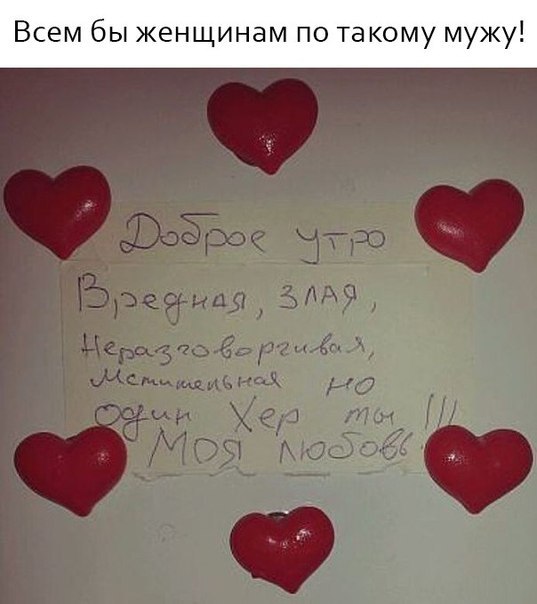 Всем бы женщинам по такому мужу!
Доброе утро
Вредная, злая,
Неразговоргивая,
Мстительная но
один Хер ты !!!
Моя любовь